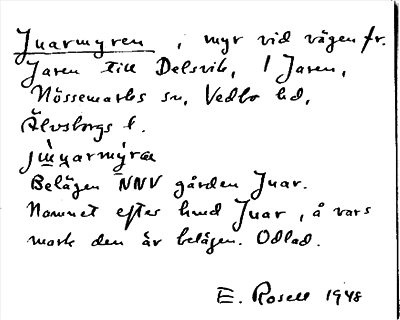 Juarmyren, myr vid vägen fr.
Jaren till Delsvik, i Jaren,
Nössemarks sn, Vedbo hd,
Älvsborgs l.
Belägen NNV gården Juar.
Namnet efter hmd Juar, å vars
mark den är belägen. Odlad.
E. Rosell 1948